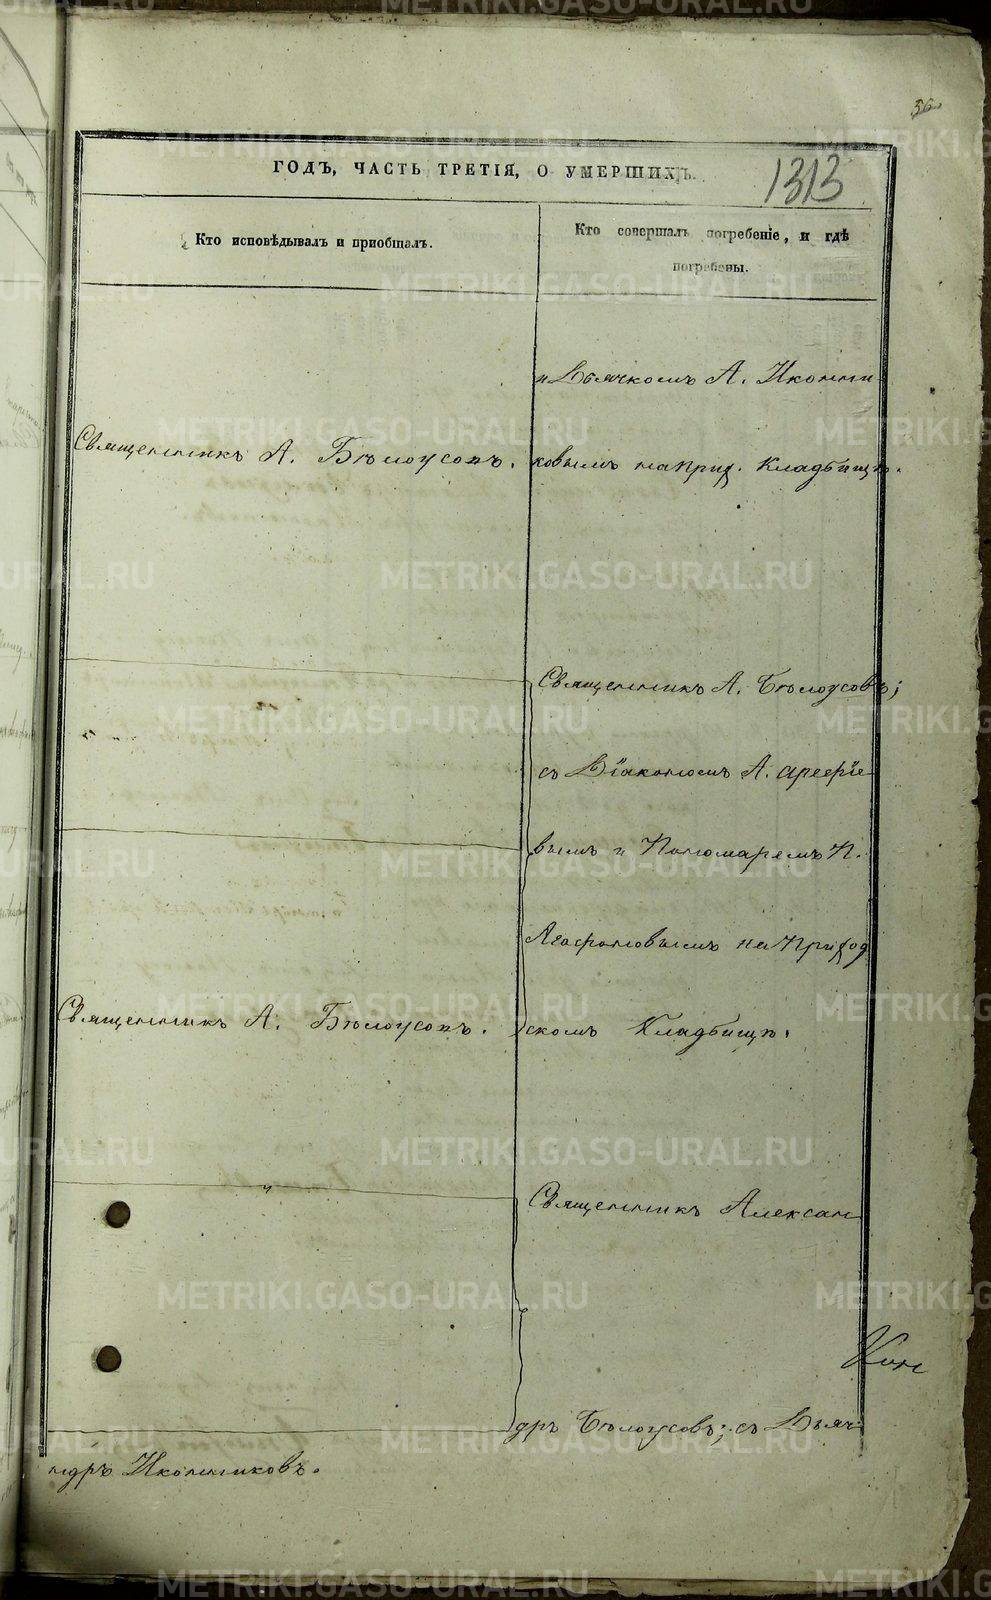 36
ГОДЪ, ЧАСТЬ ТРЕТІЯ, О УМЕРШИХЪ.
1313
Кто исповѣдывалъ и пріобщалъ.
Кто совершалъ погребеніе, и гдѣ
погребены.
и Дьячкомъ А. Иконни
Священникъ А. Бѣлоусовъ.
ковымъ на Прих. Кладбищѣ.
Священникъ А. Бѣлоусовъ;
съ Діакономъ А.
вымъ и Пономаремъ П.
Агафоновымъ на Приход
Священникъ А. Бѣлоусовъ.
скомъ Кладбищѣ.
Священникъ Алексан
дръ Бѣлоусовъ; съ Дьяч
ндръ Иконниковъ.
METRIKI.GASO-URAL.RU